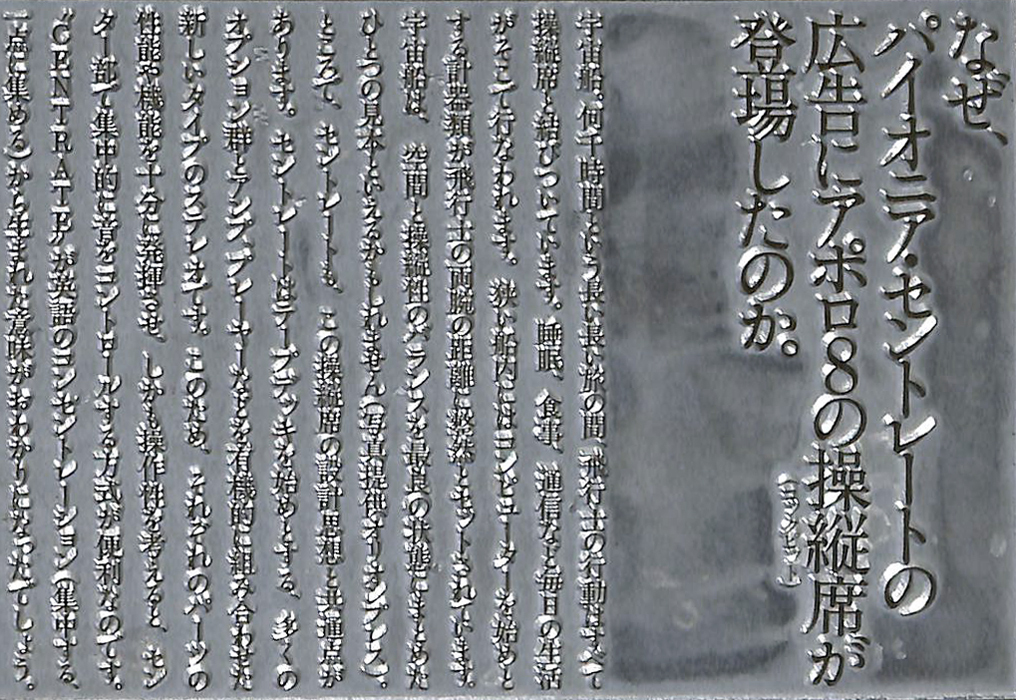 なぜ、
パイオニア・セントレートの
広告にアポロ8の操縦席が
(コックピット)
登場したのか。
宇宙船。何千時間という長い長い旅の間、飛行士の行動はすべて
操縦席と結びついています。睡眠、食事、通信など毎日の生活
がそこで行なわれます。狭い船内にはコンピューターを始めと
する計器類が飛行士の両腕の距離に整然とセットされています。
宇宙船は、空間と操縦性のバランスを最良の状態にまとめた
ひとつの見本といえるかもしれません(写真提供オリオンプレス)。
ところで、セントレートも、この操縦席の設計思想と共通点が
あります。セントレートはテープデッキを始めとする、多くの
オプション群とアンプ、プレーヤーなどを有機的に組み合わせた
新しいタイプのステレオです。このため、それぞれのパーツの
性能や機能を十分に発揮させ、しかも操作性を考えると、セン
ター部で集中的に音をコントロールする方式が便利なのです。
CENTRATEが英語のコンセントレーション(集中する、
一点に集める)から生まれた意味がおわかりになったでしょう。